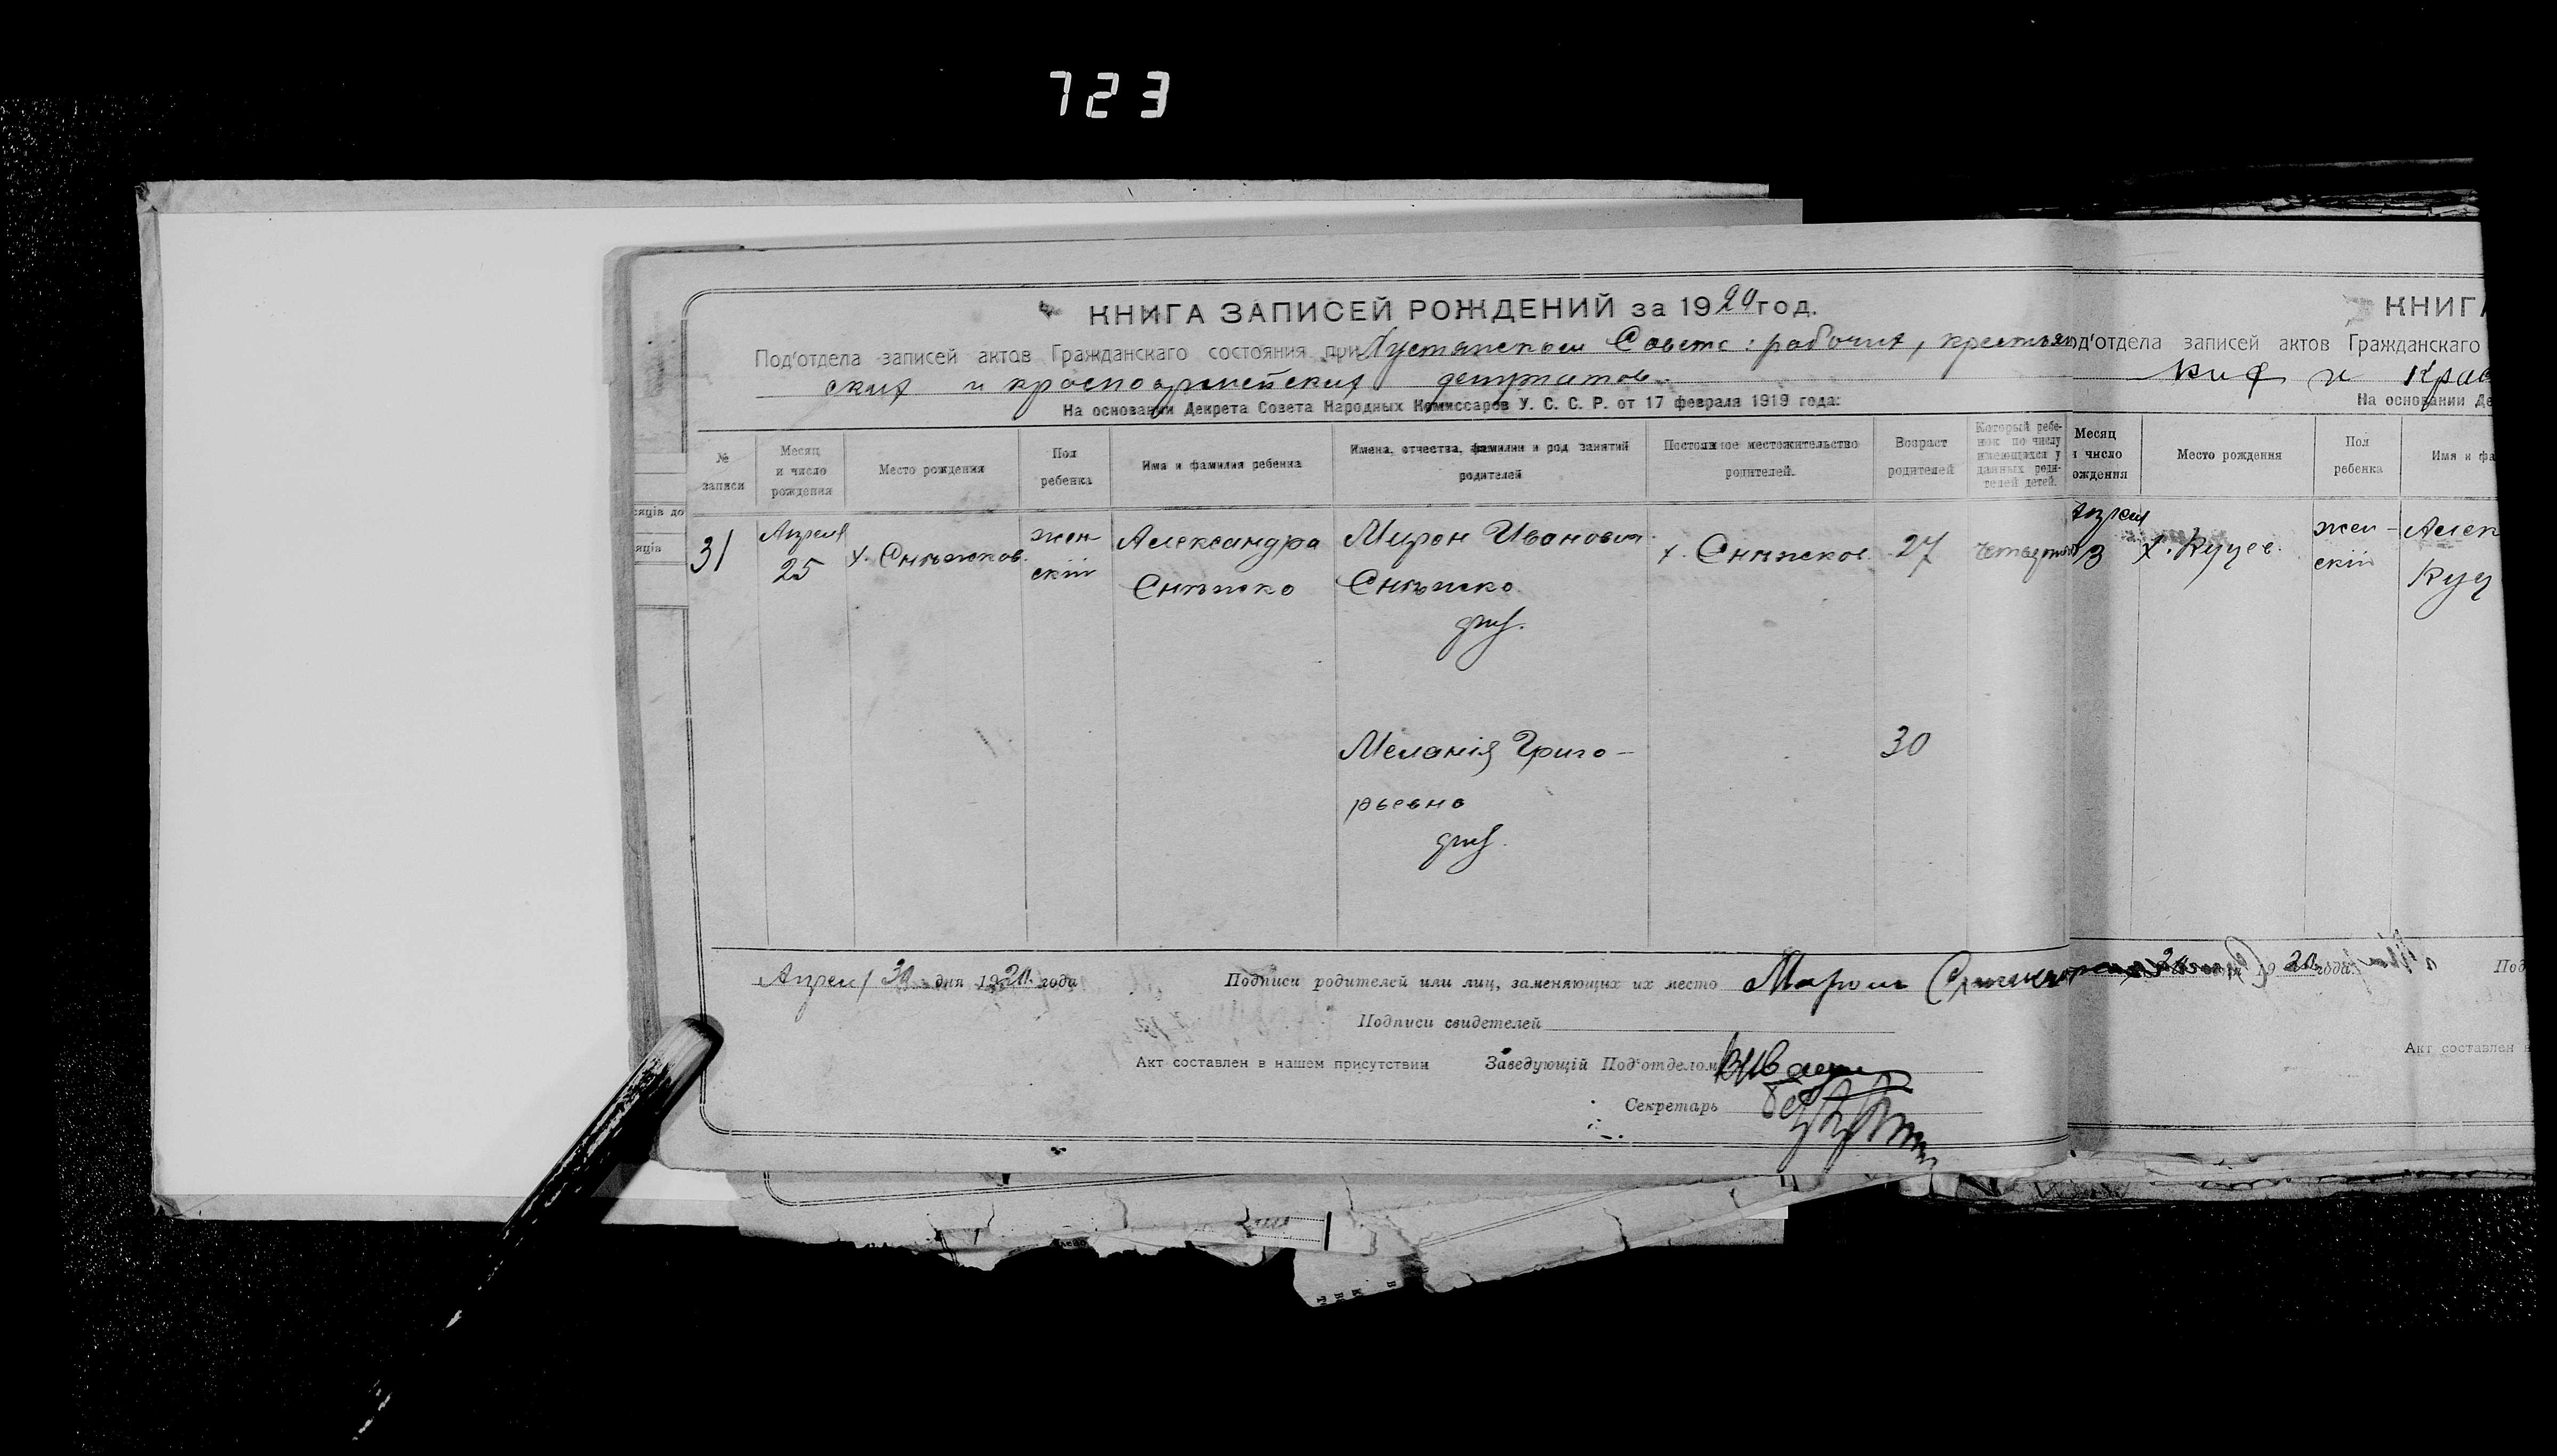 723
КНИГА ЗАПИСЕЙ РОЖДЕНИЙ за 1920 год.
Под'отдела записей актов Гражданскаго состояния при Пустянском Совете: рабочих, крестьян
ских и красноармейских депутатов.
На основании Декрета Совета Народных Комиссаров У. С. С. Р. от 17 февраля 1919 года:
№ записи
Месяц и число рождения
Место рождения
Пол ребенка
Имя и фамилия ребенка
Имена, отчества, фамилии и род занятий родителей
Постоянное местожительство родителей.
Возраст родителей
Который ребенок по числу имеющихся у данных родителей детей.
31
Апрел
25
х. Снѣжков.
жен
скій
Александра
Снѣжко
Мирон Иванович
Снѣжко
х. Снѣжков
27
четвертый
Меланія Григо-
рьевна
30
Апрел 30 дня 1920 года
Подписи родителей или лиц, заменяющих их место Мирон
Подписи свидетелей
Акт составлен в нашем присутствии Заведующій Под'отделом
Секретарь
КНИГ
од'отдела записей актов Гражданскаго
ких и Крас
На основании Де
Месяц
и число
ождения
Место рождения
Пол
ребенка
Имя и фа
Апрел
3
х. Куцее.
жен-
скій
Алек
Куц
1920 года.
Под
Акт составлен в
сяців до
яців